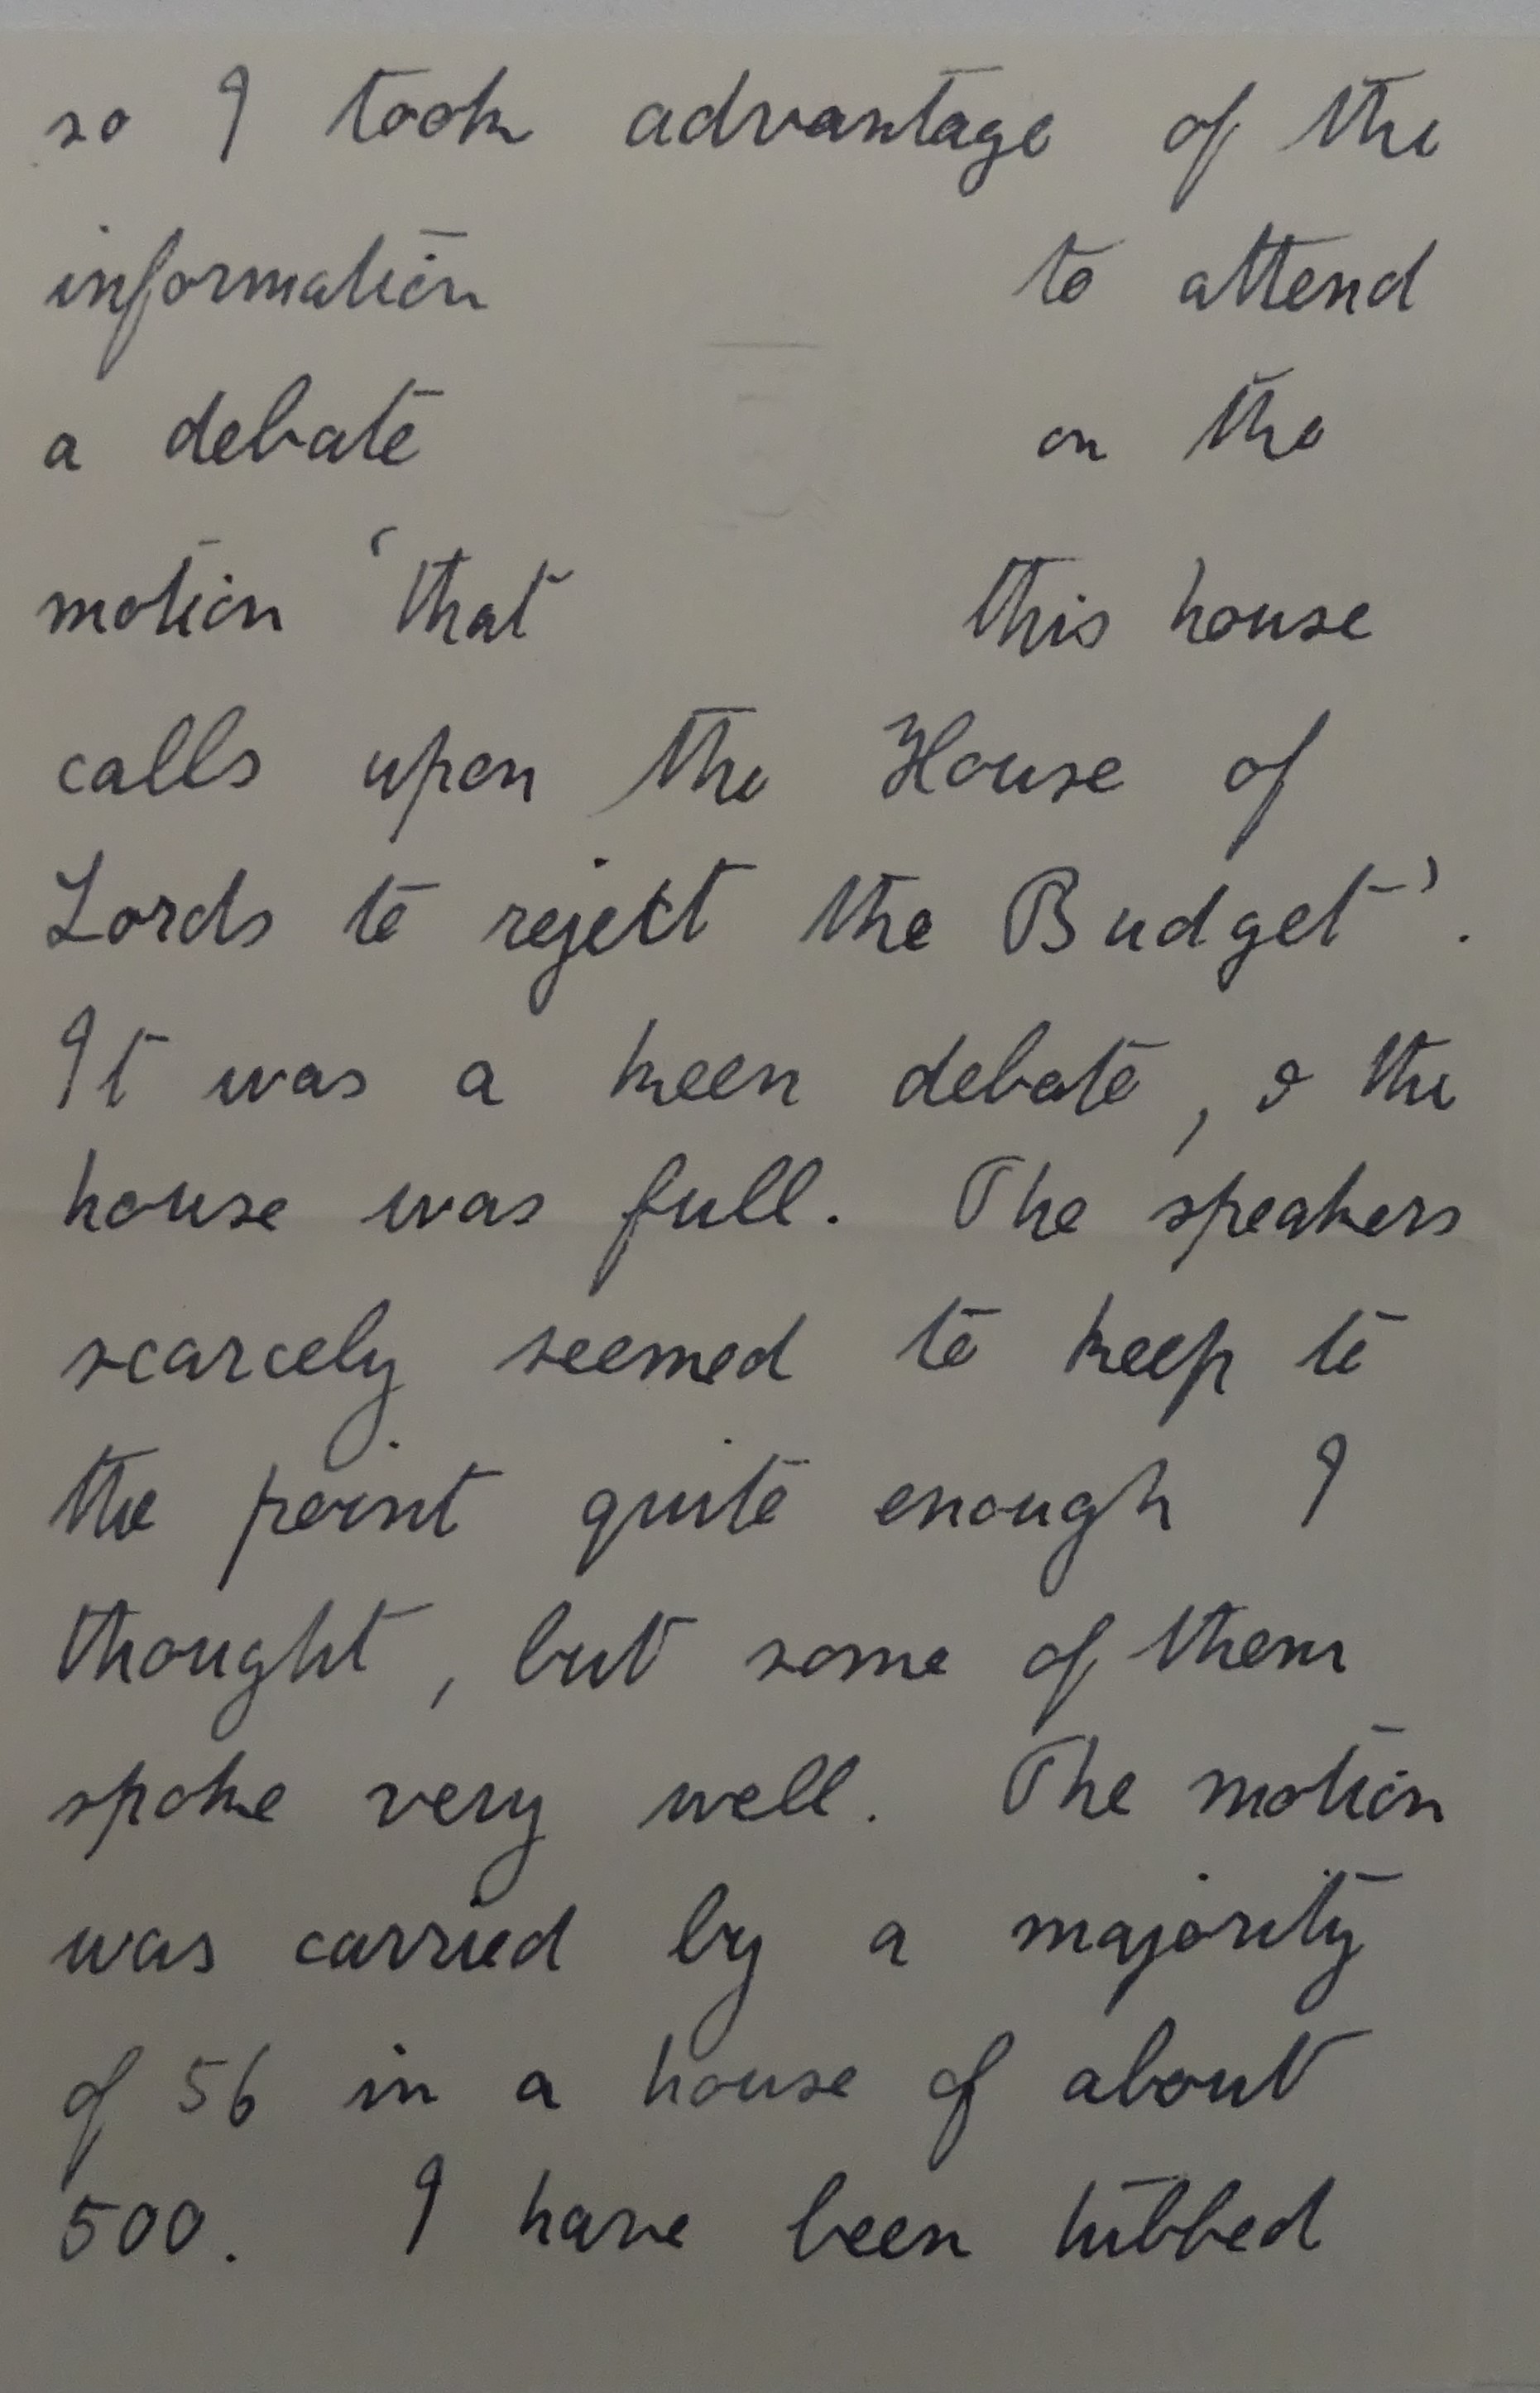 so I took advantage of the
information to attend
a debate on the
motion 'that this house
calls upon the House of
Lords to reject the Budget'.
It was a keen debate, & the
house was full. The speakers
scarcely seemed to keep to
the point quite enough I
thought, but some of them
spoke very well. The motion
was carried by a majority
of 56 in a house of about
500. I have been tubbed